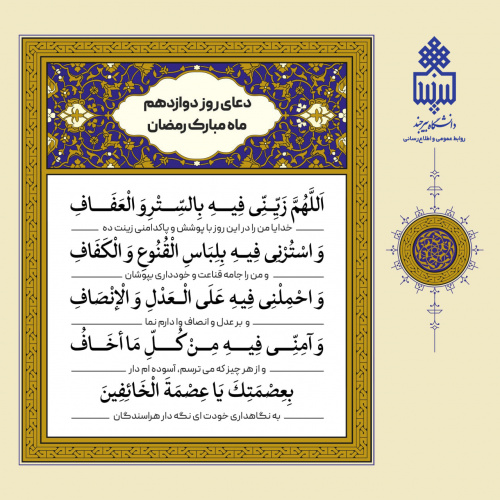 دعای روز دوازدهم
ماه مبارک رمضان
اَللَّهُمَّ زَیِّنِّی فِیهِ بِالسِّتْرِ وَ الْعَفَافِ
خدایا من را در این روز با پوشش و پاکدامنی زینت ده
وَ اسْتُرْنِی فِیهِ بِلِبَاسِ الْقُنُوعِ وَ الْکَفَافِ
و من را جامه قناعت و خودداری بپوشان
وَ احْمِلْنِی فِیهِ عَلَی الْعَدْلِ وَ الْإِنْصَافِ
و بر عدل و انصاف وا دارم نما
وَ آمِنِّی فِیهِ مِنْ کُلِّ مَا أَخَافُ
و از هر چیز که می ترسم، آسوده ام دار
بِعِصْمَتِكَ یَا عِصْمَةَ الْخَائِفِینَ
به نگاهداری خودت ای نگه دار هراسندگان
دانشگاه بیرجند
روابط عمومی و اطلاع‌رسانی